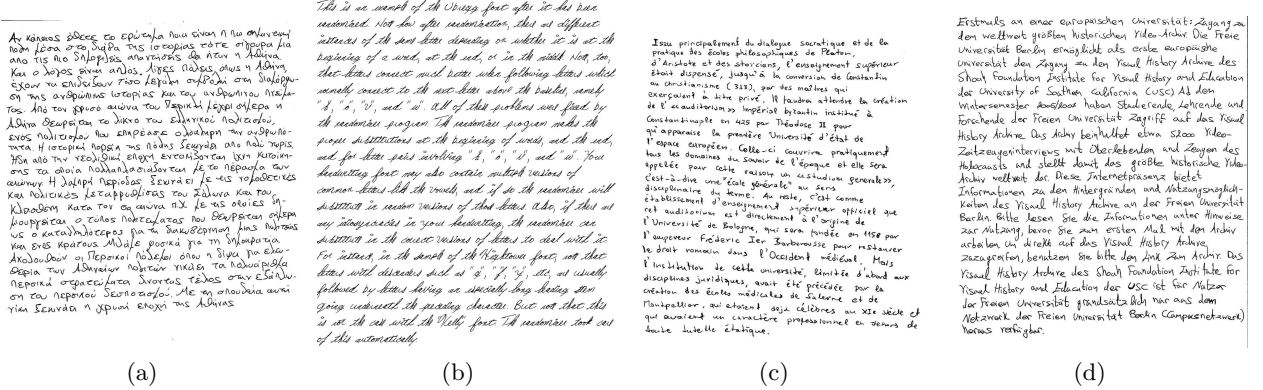 Αν κάποιος έθετε το ερώτημα ποια είναι η πιο σημαντική
πόλη μέσα στο διάβα της ιστορίας τότε σίγουρα μία
απο τις πιο δημοφιλείς απαντήσεις θα ήταν η Αθήνα
Και ο λόγος είναι απλός. Λίγες πόλεις όπως η Αθήνα
έχουν να επιδείξουν τόσο μεγάλη συμβολή στη διαμόρφω-
ση της ανθρώπινης ιστορίας και του ανθρώπινου πνεύμα-
τος. Από τον χρυσό αιώνα του Περικλή μέχρι σήμερα η
Αθήνα θεωρείται το λίκνο του Ελληνικού πολιτισμού,
ενός πολιτισμού που επηρέασε ολόκληρη την ανθρωπό-
τητα. Η ιστορική πορεία της πόλης ξεκινάει απο πολύ νωρίς.
Ήδη από την νεολιθική εποχή εντοπίζονται ίχνη κατοίκη-
σης τα οποία πολλαπλασιάζονται με το πέρασμα των
αιώνων. Η λαμπρή περίοδος ξεκινάει με τις νομοθετικές
και πολιτικές μεταρρυθμίσεις του Σόλωνα και του
Κλεισθένη κατά τον 6η αιώνα π.Χ με τις οποίες δη-
μιουργείται ο τύπος πολιτεύματος που θεωρείται σήμερα
ως ο καταλληλότερος για τη διακυβέρνηση μιας πολιτείας
και ενός κράτους. Μιλάμε φυσικά για τη δημοκρατία
Ακολουθούν οι Περσικοί πόλεμοι όπου η δίψα για ελευ-
θερία των Αθηναίων πολιτών νικάει τα πολυάριθμα
περσικά στρατεύματα δίνοντας τέλος στην εξάπλω-
ση του περσικού δεσποτισμού. Με τη σπουδαία αυτή
νίκη ξεκινάει η χρυσή εποχή της Αθήνας
(a)
This is an example of the Ubrezg font after it has been
randomized. Note how after randomization, there are different
instances of the same letter depending on whether it is at the
beginning of a word, at the end, or in the middle. Note, too,
that letters connect much better when following letters which
normally connect to the next letter above the baseline, namely
"b", "o", "v", and "w". All of this problems were fixed by
the randomizer program. The randomizer program makes the
proper substitutions at the beginning of words, and the end,
and for letter pairs involving "b", "o", "v", and "w". Your
handwriting font may also contain multiple versions of
common letters like the vowels, and if so the randomizer will
substitute in random versions of these letters. Also, if there are
any idiosyncracies in your handwriting, the randomizer can
substitute in the correct versions of letters to deal with it.
For instance, in the sample of the Hightower font, note that
letters with descenders such as "g", "j", "y", etc, are usually
followed by letters having an especially long leading stem
going underneath the preceding character. But note that this
is not the case with the "Kelly" font. The randomizer took care
of this automatically.
(b)
Issu principallement du dialogue socratique et de la
pratique des écoles philosophiques de Platon,
d'Aristote et des stoïciens, l'enseignement supérieur
étoit dispensé, jusqu'à la conversion de Constantin
au christianisme (313), par des maîtres qui
exerçaient à titre privé. Il faudra attendre la création
de l'«auditorium» impérial byzantin institué à
Constantinople en 425 par Théodose II pour
qui apparaisse la première Université d'état de
l'espace européen. Celle-ci couvrira pratiquement
tous les domaines du savoir de l'époque et elle sera
appelée pour cette raison un «studium generale»,
c'est-à-dire une "école générale" au sens
disciplinaire du terme. Au reste, c'est comme
établissement d'enseignement supérieur officiel que
cet auditorium est directement à l'origine de
l'Université de Bologne, qui sera fondée en 1158 par
l'empereur Fréderic Ier Barberousse pour restaurer
le droit romain dans l'Occident médieval. Mais
l'institution de cette université, limitée d'abord aux
disciplines juridiques, avait été précédée par la
création des écoles médicales de Salerne et de
Montpellier, qui etaient deja célèbres au XIe siècle et
qui avaient un caractère professionnel en dehors de
toute tutelle étatique.
(c)
Erstmals an einer europäischen Universität: Zugang zu
dem weltweit größten historischen Video-Archiv Die Freie
Universität Berlin ermöglicht als erste europäische
Universität den Zugang zu den Visual History Archive des
Shoah Foundation Institute for Visual History and Education
der University of Southern California (USC) Ab dem
Wintersemester 2005/2006 haben Studierende, Lehrende und
Forschende der Freien Universität Zugriff auf das Visual
History Archive. Das Archiv beinhaltet etwa 52000 Video-
Zeitzeugeninterviews mit Überlebenden und Zeugen des
Holocausts und stellt damit das größte historische Video-
Archiv weltweit dar. Diese Internetpräsenz bietet
Informationen zu den Hintergründen und Nutzungsmöglich-
keiten des Visual History Archive an der Freien Universität
Berlin. Bitte lesen Sie die Informationen unter Hinweise
zur Nutzung, bevor Sie zum ersten Mal mit dem Archiv
arbeiten. Um direkt auf das Visual History Archive
zuzugreifen, benutzen Sie bitte den Link Zum Archiv. Das
Visual History Archive des Shoah Foundation Institute for
Visual History and Education der USC ist für Nutzer
der Freien Universität grundsätzlich nur aus dem
Netzwerk der Freien Universität Berlin (Campusnetzwerk)
heraus verfügbar.
(d)